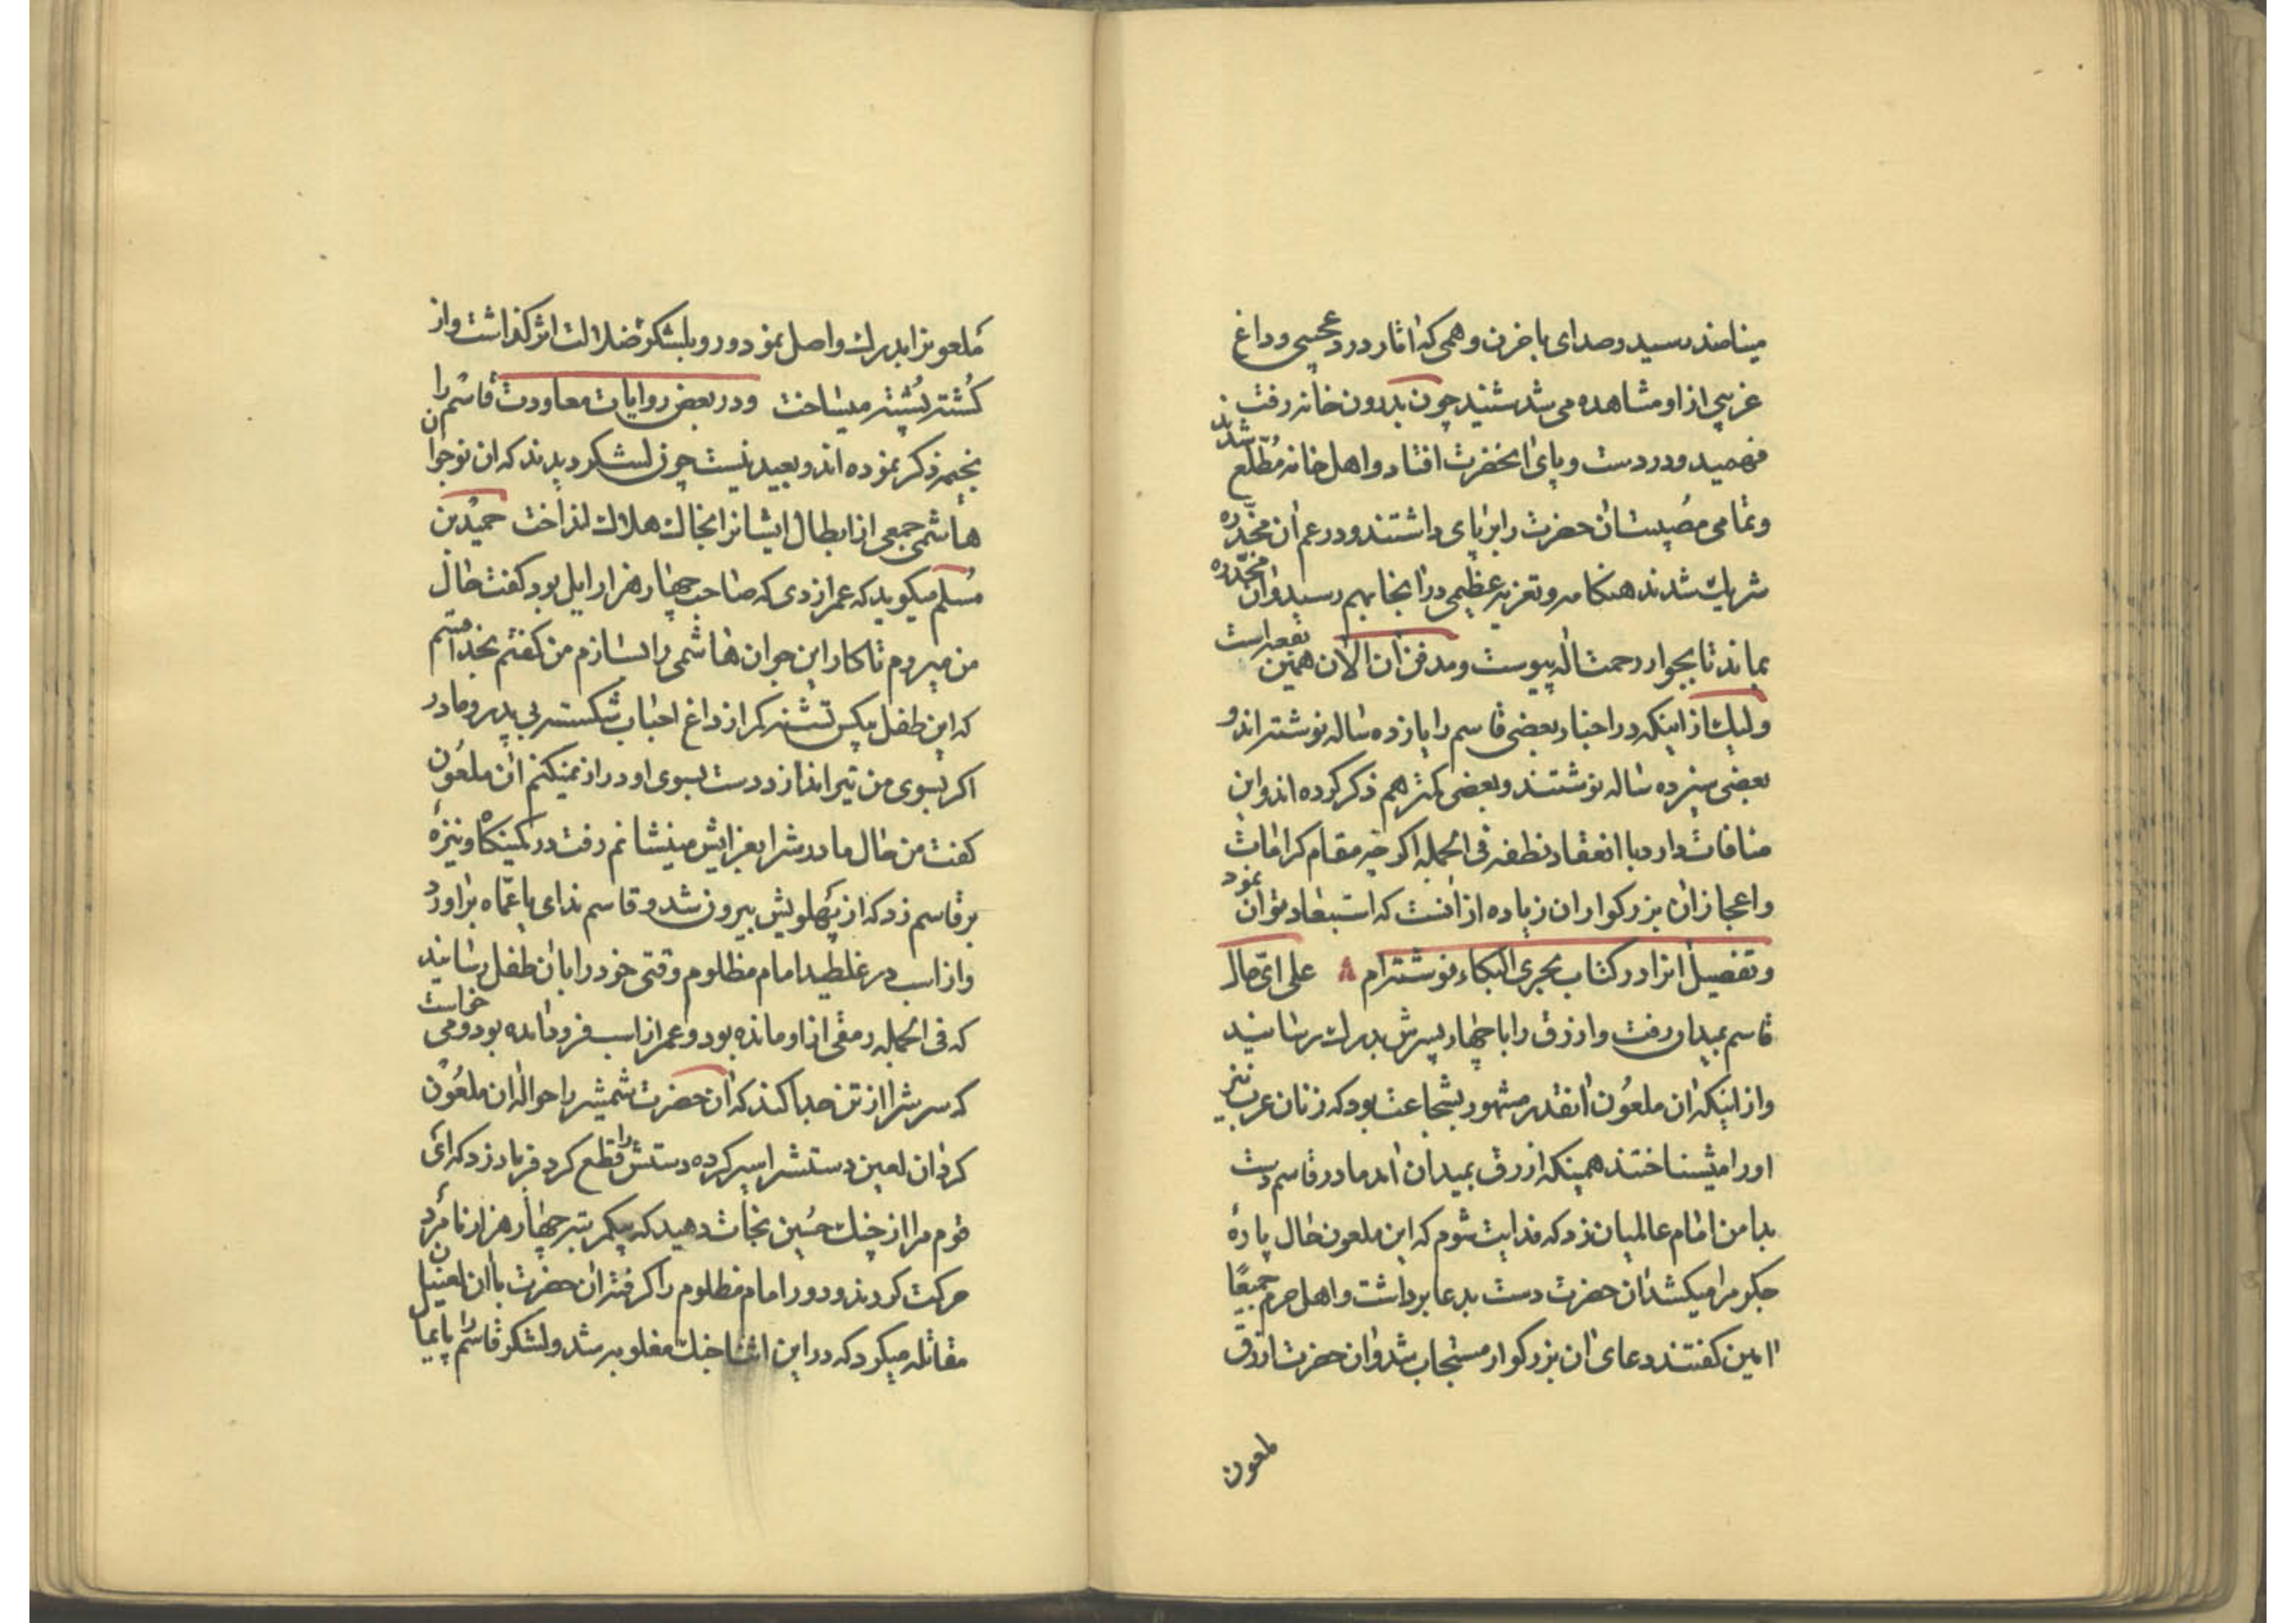 میناصند رسید و صدای با خزن و همی که اثار درد عجیبی و داغ
غریبی از او مشاهده می شد شنید چون بدرون خانه رفت
فهمید و در دست و پای انحضرت افتاد و اهل خانه مطلع شدند
و تمامی مصیبت ان حضرت را بر پای داشتند و در غم ان مخدره
شریک شدند هنکامه و تعزیه عظیمی در انجا بهم رسید و ان مخدره
بماند تا بجوار رحمت اله پیوست و مدفن ان الان همین بقعه است
ولیک از اینکه در اخبار بعضی قاسم را پانزده ساله نوشته اند و
بعضی سیزده ساله نوشتند و بعضی کمتر هم ذکر کرده اند و این
منافات دارد با انعقاد نطفه فی الجمله اکر چه مقام کرامات
و اعجاز ان بزرکواران زیاده از انست که استبعاد توان نمود
و تفصیل انرا در کتاب مجری البکاء نوشته ام ۸ علی ای حال
قاسم بمیدان رفت و ازرق را با چهار پسرش بدرک رسانید
و از اینکه ان ملعون انقدر مشهور بشجاعت بود که زنان عرب نیز
او را میشناختند همینکه ازرق بمیدان امد مادر قاسم دست
بدامن امام عالمیان زد که فدایت شوم که این ملعون حال پارهٔ
جکر مرا میکشد ان حضرت دست بدعا برداشت و اهل حرم جمیعًا
امین کفتند دعای ان بزرکوار مستجاب شد و ان حضرت ازرق
ملعون
ملعونرا بدرک واصل نمود و رو بلشکر ضلالت اثر کذاشت و از
کشته پشته میساخت و در بعض روایات معاودت قاسم را
بخیمه ذکر نموده اند و بعید نیست چون لشکر دیدند که ان نوجوان
هاشمی جمعی از ابطال ایشانرا بخاک هلاک انداخت حمید بن
مسلم میکوید که عمر ازدی که صاحب چهار هزار ایل بود کفت حال
من میروم تا کار این جوان هاشمی را بسازم من کفتم بخدا قسم
که این طفل بیکس تشنه که از داغ احباب شکسته بی پدر و مادر
اکر بسوی من تیر اندازد دست بسوی او دراز نمیکنم ان ملعون
کفت من حال مادرش را بعزایش مینشانم رفت در کمینکاه و نیزهٔ
بر قاسم زد که از پهلویش بیرون شد و قاسم ندای یا عماه براورد
و از اسب در غلطید امام مظلوم وقتی خود را بان طفل رسانید
که فی الجمله رمقی از او مانده بود و عمر از اسب فرود امده بود و می خواست
که سرش را از تن جدا کند که ان حضرت شمشیر را حواله ان ملعون
کرد ان لعین دستش را سپر کرده دستش را قطع کرد فریاد زد که ای
قوم مرا از چنک حسین نجات دهید که بیکمرتبه چهار هزار نامرد
حرکت کردند و دور امام مظلوم را کرفته ان حضرت با ان لعینان
مقاتله میکرد که در این اثنا جنک مغلوبه شد و لشکر قاسم را پایمال